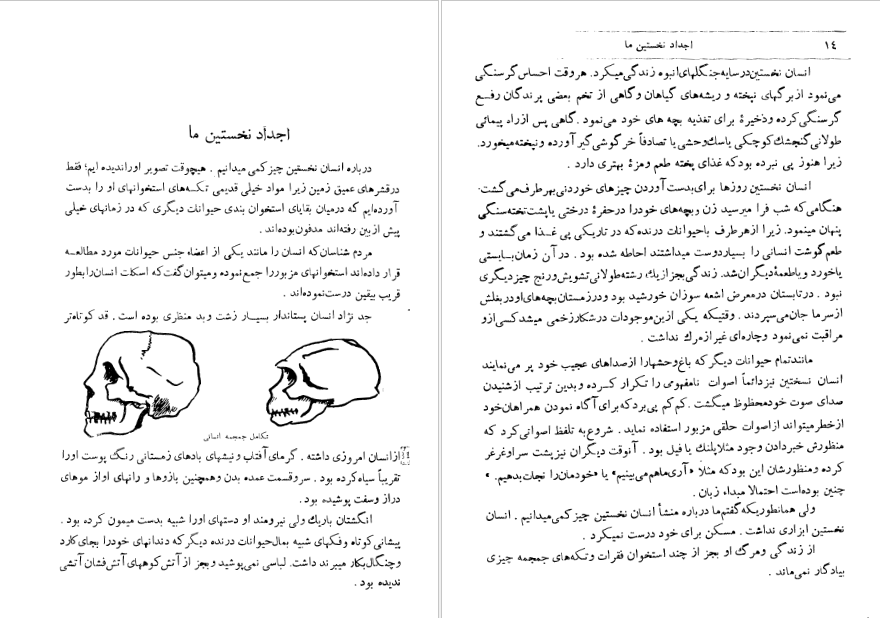 اجداد نخستین ما
درباره انسان نخستین چیز کمی میدانیم . هیچوقت تصویر اوراندیده ایم؛ فقط
درقشرهای عمیق زمین زیرا مواد خیلی قدیمی تکه‌های استخوانهای او را بدست
آورده‌ایم که درمیان بقایای استخوان بندی حیوانات دیگری که در زمانهای خیلی
پیش ازبین رفته‌اند مدفون بوده‌اند .
مردم شناسان که انسان را مانند یکی از اعضاء جنس حیوانات مورد مطالعه
قرار داده‌اند استخوانهای مزبور را جمع نموده و میتوان گفت که اسکلت انسان را بطور
قریب بیقین درست نموده‌اند .
جد نژاد انسان پستاندار بسیار زشت وبد منظری بوده است . قد کوتاه‌تر
تکامل جمجمه انسانی
ازانسان امروزی داشته . گرمای آفتاب ونیشهای بادهای زمستانی رنگ پوست اورا
تقریباً سیاه کرده بود . سروقسمت عمده بدن وهمچنین بازوها و رانهای اواز موهای
دراز وسفت پوشیده بود .
انگشتان باریك ولی نیرومند او دستهای اورا شبیه بدست میمون کرده بود .
پیشانی کوتاه و فکهای شبیه بمال حیوانات درنده دیگر که دندانهای خودرا بجای کارد
وچنگال بکار میبرند داشت. لباسی نمی‌پوشید وبجز از آتش کوههای آتش فشان آتشی
ندیده بود .
١٤
اجداد نخستین ما
انسان نخستین درسایه جنگلهای انبوه زندگی میکرد. هروقت احساس گرسنگی
می‌نمود ازبرگهای نپخته و ریشه‌های گیاهان وگاهی از تخم بعضی پرندگان رفع
گرسنگی کرده وذخیرهٔ برای تغذیه بچه های خود می‌نمود .گاهی پس ازراه پیمائی
طولانی گنجشك کوچکی یاسك وحشی یا تصادفاً خرگوشی گیر آورده و نپخته میخورد.
زیرا هنوز پی نبرده بود که غذای پخته طعم ومزهٔ بهتری دارد .
انسان نخستین روزها برای بدست آوردن چیزهای خوردنی بهرطرف می‌گشت .
هنگامی که شب فرا میرسید زن وبچه‌های خودرا درحفرهٔ درختی یا پشت تخته سنگی
پنهان مینمود. زیرا ازهرطرف باحیوانات درنده که در تاریکی پی غذا می‌گشتند و
طعم گوشت انسانی را بسیاردوست میداشتند احاطه شده بود . در آن زمان بایستی
یاخورد ویاطعمهٔ دیگران شد. زندگی بجز ازیك رشته طولانی تشویش ورنج چیزدیگری
نبود . درتابستان درمعرض اشعه سوزان خورشید بود ودرزمستان بچه‌های اودربغلش
ازسرما جان می‌سپردند . وقتیکه یکی ازین موجودات درشکار زخمی میشد کسی ازو
مراقبت نمی‌نمود وچاره‌ای غیراز مرك نداشت .
مانند تمام حیوانات دیگر که باغ وحشهارا ازصداهای عجیب خود پر می‌نمایند
انسان نخستین نیز دائماً اصوات نامفهومی را تکرار کرده وبدین ترتیب ازشنیدن
صدای صوت خود محظوظ میگشت . کم کم پی برد که برای آگاه نمودن همراهان خود
ازخطر میتواند ازاصوات حلقی مزبور استفاده نماید . شروع به تلفظ اصواتی کرد که
منظورش خبردادن وجود مثلا پلنك یا فیل بود . آنوقت دیگران نیز پشت سراوغرغر
کرده ومنظورشان این بود که مثلاً «آری ماهم می‌بینیم» یا «خودمان را نجات بدهیم. »
چنین بوده‌است احتمالا مبداء زبان .
ولی همانطوریکه گفتم ما درباره منشأ انسان نخستین چیز کمی میدانیم . انسان
نخستین ابزاری نداشت . مسکن برای خود درست نمیکرد .
از زندگی ومرگ او بجز از چند استخوان فقرات وتکه‌های جمجمه چیزی
بیادگار نمی‌ماند .